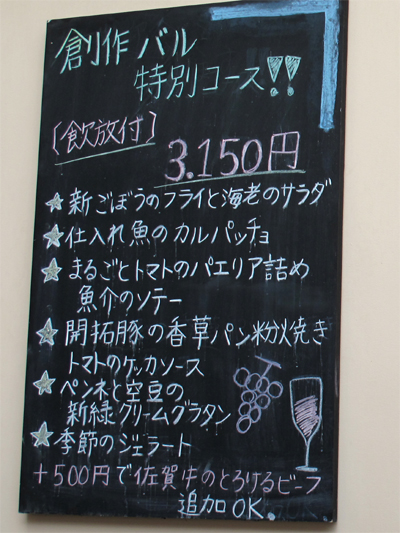 創作バル
特別コース!!
〔飲放付〕
3.150円
★新ごぼうのフライと海老のサラダ
★仕入れ魚のカルパッチョ
★まるごとトマトのパエリア詰め
魚介のソテー
★開拓豚の香草パン粉焼き
トマトのケッカソース
★ペンネと空豆の
新緑クリームグラタン
★季節のジェラート
+500円で佐賀牛のとろけるビーフ
追加OK.